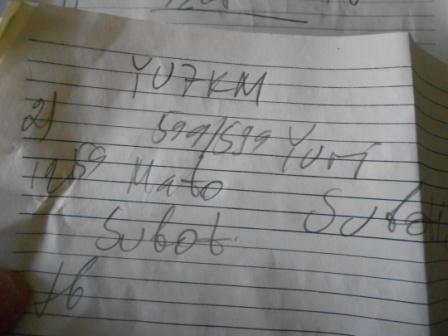 YU7KM
2) 599/599 Yuri
1259 Mato Subot
Subot.